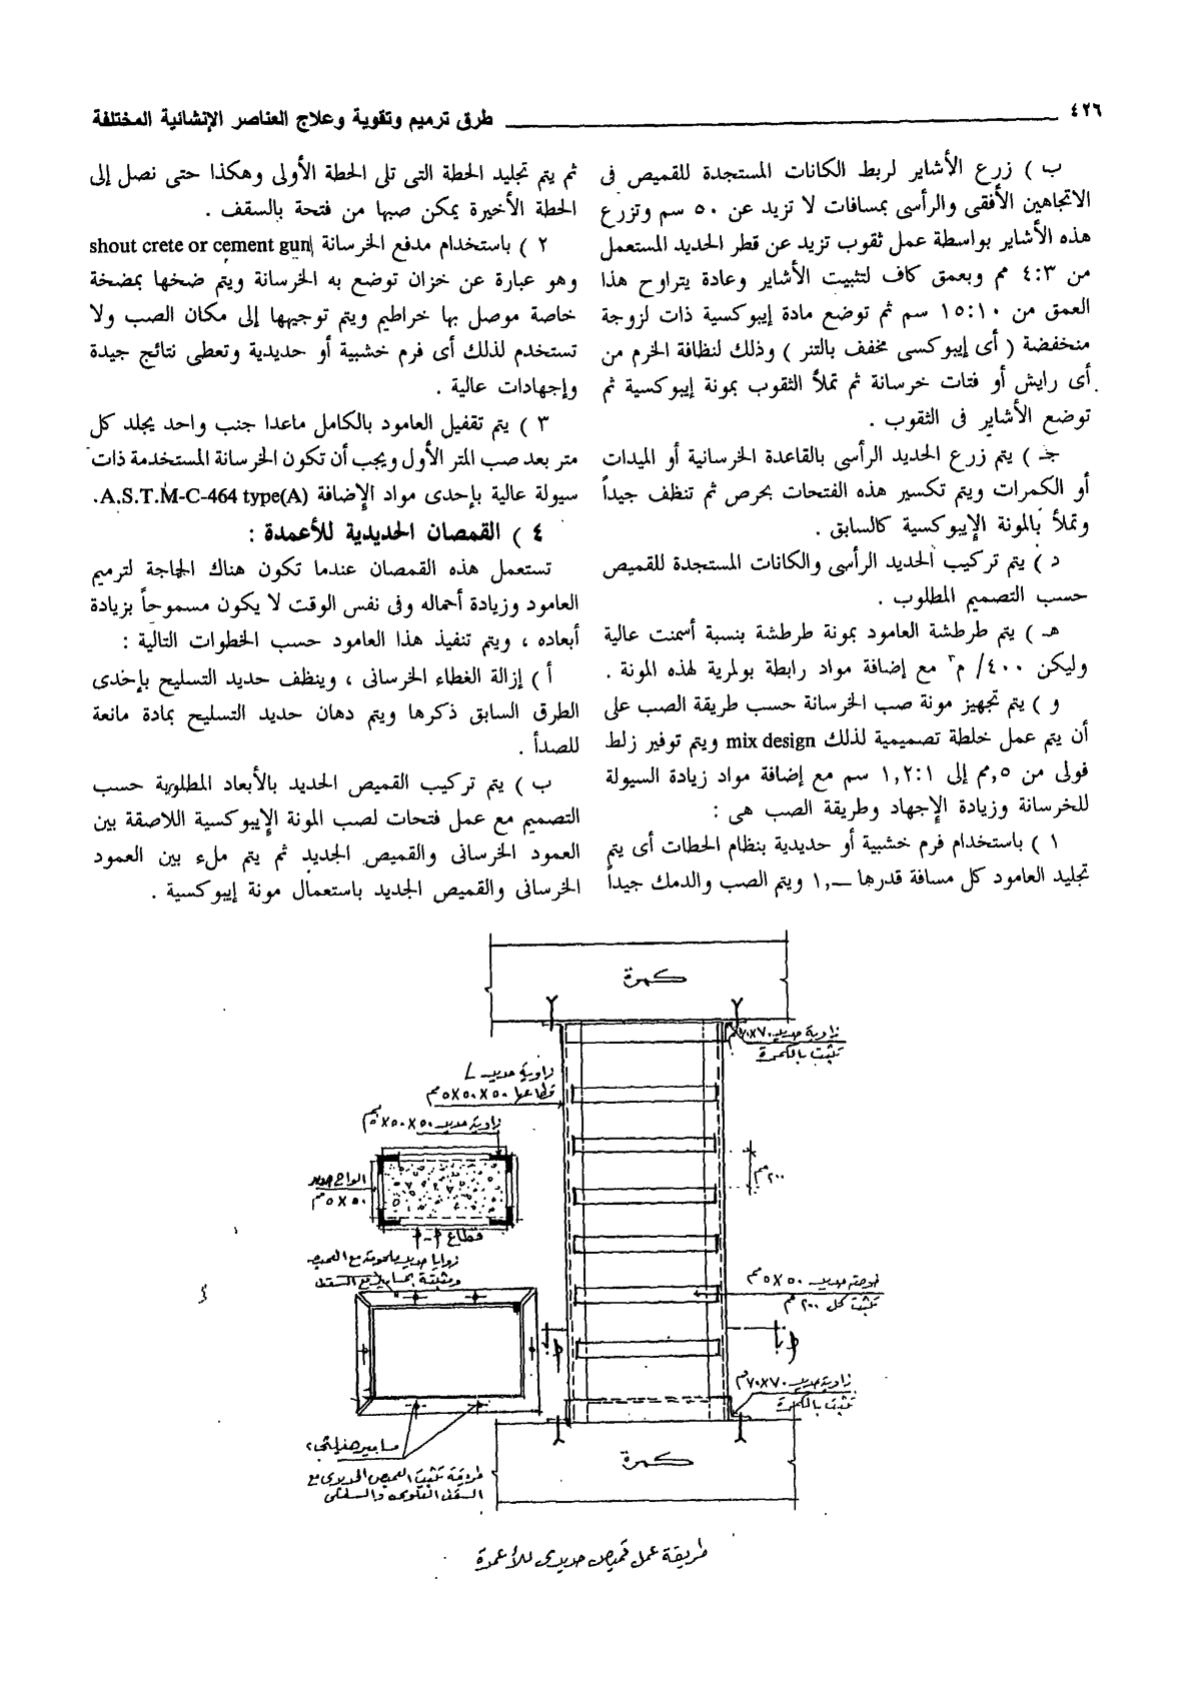 ٤٢٦
طرق ترميم وتقوية وعلاج العناصر الإنشائية المختلفة
ب ) زرع الأشاير لربط الكانات المستجدة للقميص فى
الاتجاهين الأفقى والرأسى بمسافات لا تزيد عن ٥٠ سم وتزرع
هذه الأشاير بواسطة عمل ثقوب تزيد عن قطر الحديد المستعمل
من ٤:٣ مم وبعمق كاف لتثبيت الأشاير وعادة يتراوح هذا
العمق من ١٥:١٠ سم ثم توضع مادة إيبوكسية ذات لزوجة
منخفضة ( أى إيبوكسى مخفف بالتنر ) وذلك لنظافة الخرم من
أى رايش أو فتات خرسانة ثم تملأ الثقوب بمونة إيبوكسية ثم
توضع الأشاير فى الثقوب .
جـ ) يتم زرع الحديد الرأسى بالقاعدة الخرسانية أو الميدات
أو الكمرات ويتم تكسير هذه الفتحات بحرص ثم تنظف جيداً
وتملأ بالمونة الإيبوكسية كالسابق .
د ) يتم تركيب الحديد الرأسى والكانات المستجدة للقميص
حسب التصميم المطلوب .
هـ ) يتم طرطشة العامود بمونة طرطشة بنسبة أسمنت عالية
وليكن ٤٠٠/ م٣ مع إضافة مواد رابطة بولمرية لهذه المونة .
و ) يتم تجهيز مونة صب الخرسانة حسب طريقة الصب على
أن يتم عمل خلطة تصميمية لذلك mix design ويتم توفير زلط
فولى من ٥,مم إلى ١,٢:١ سم مع إضافة مواد زيادة السيولة
للخرسانة وزيادة الإجهاد وطريقة الصب هى :
١ ) باستخدام فرم خشبية أو حديدية بنظام الحطات أى يتم
تجليد العامود كل مسافة قدرها ــ,١ ويتم الصب والدمك جيداً
ثم يتم تجليد الحطة التى تلى الحطة الأولى وهكذا حتى نصل إلى
الحطة الأخيرة يمكن صبها من فتحة بالسقف .
٢ ) باستخدام مدفع الخرسانة shout crete or cement gun
وهو عبارة عن خزان توضع به الخرسانة ويتم ضخها بمضخة
خاصة موصل بها خراطيم ويتم توجيهها إلى مكان الصب ولا
تستخدم لذلك أى فرم خشبية أو حديدية وتعطى نتائج جيدة
وإجهادات عالية .
٣ ) يتم تقفيل العامود بالكامل ماعدا جنب واحد يجلد كل
متر بعد صب المتر الأول ويجب أن تكون الخرسانة المستخدمة ذات
سيولة عالية بإحدى مواد الإضافة A.S.T.M-C-464 type(A).
٤ ) القمصان الحديدية للأعمدة :
تستعمل هذه القمصان عندما تكون هناك الحاجة لترميم
العامود وزيادة أحماله وفى نفس الوقت لا يكون مسموحاً بزيادة
أبعاده ، ويتم تنفيذ هذا العامود حسب الخطوات التالية :
أ ) إزالة الغطاء الخرسانى ، وينظف حديد التسليح بإحدى
الطرق السابق ذكرها ويتم دهان حديد التسليح بمادة مانعة
للصدأ .
ب ) يتم تركيب القميص الحديد بالأبعاد المطلوبة حسب
التصميم مع عمل فتحات لصب المونة الإيبوكسية اللاصقة بين
العمود الخرسانى والقميص الجديد ثم يتم ملء بين العمود
الخرسانى والقميص الجديد باستعمال مونة إيبوكسية .
كمرة
زاوية حديد ٧٠x٧٠
تثبت بالكمرة
زاوية حديد L
قطاعها ٥٠x٥٠x٥مم
زاوية حديد ٥٠x٥٠x٥مم
الواح حديد
٥٠x٥مم
٢٠٠مم
قطاع أ-أ
زوايا حديد ملحومة مع القميص
ومثبتة بمسامير مع السقف
خوصة حديد ٥٠x٥مم
تثبت كل ٢٠٠ مم
زاوية حديد ٧٠x٧٠م
تثبت بالكمرة
مسامير هيلتى
كمرة
طريقة تثبيت القميص الحديدى مع
السقف العلوى والسفلى
طريقة عمل قميص حديدى للأعمدة